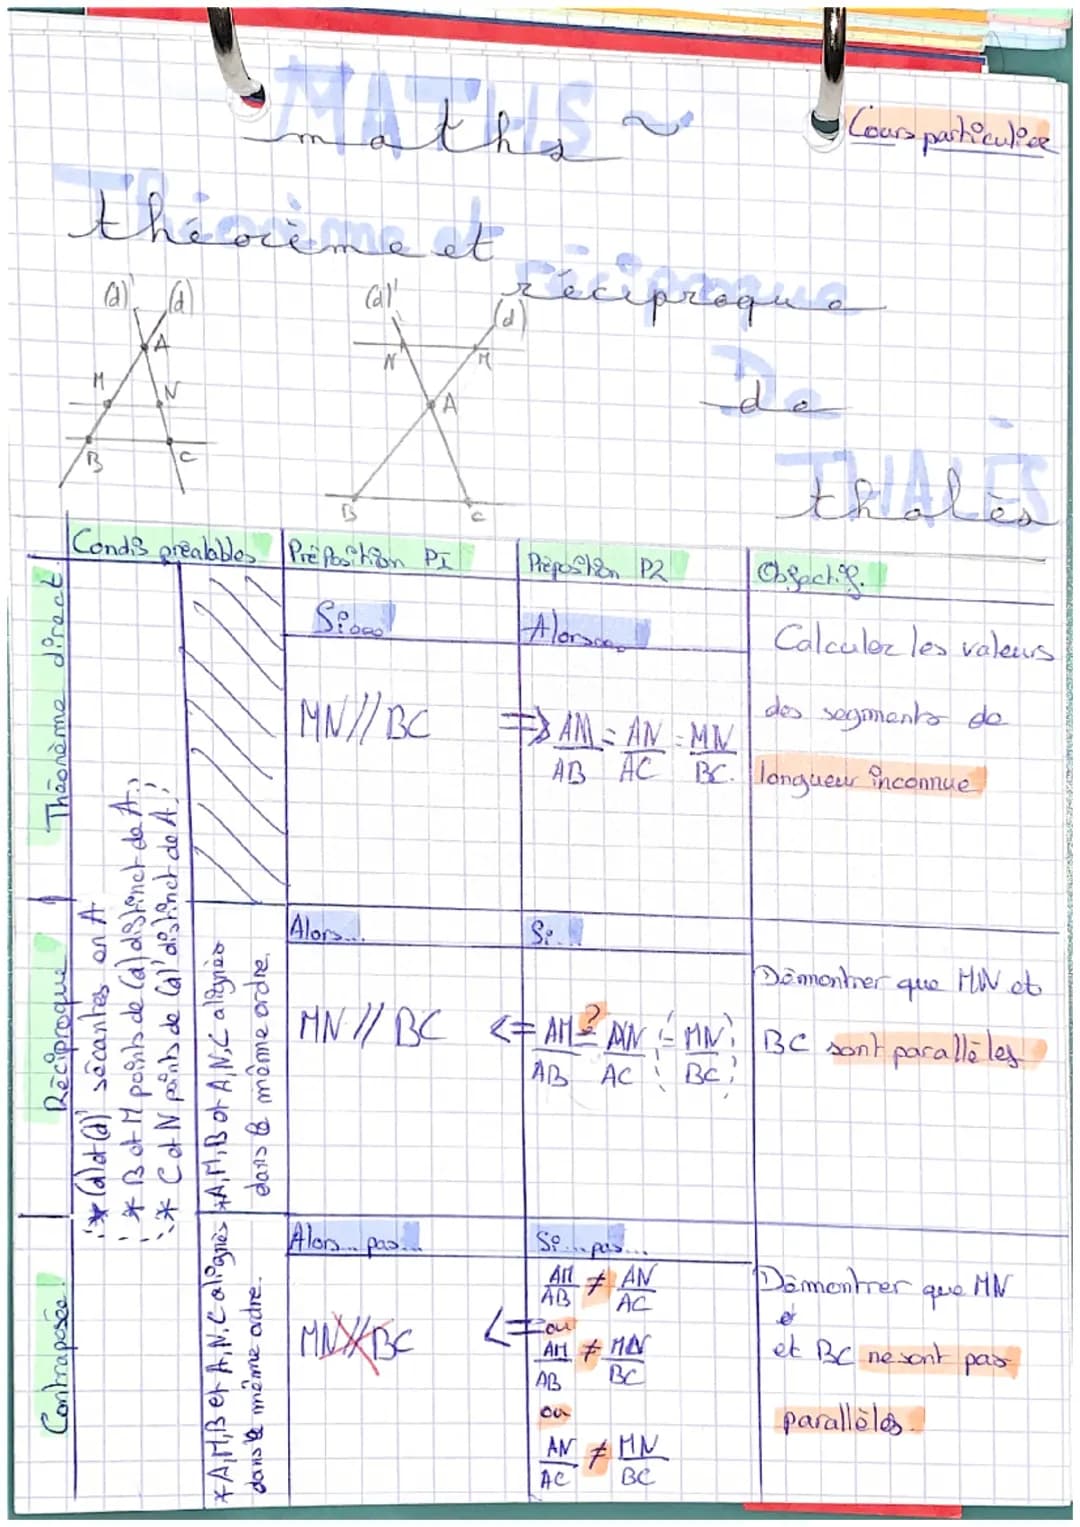 MATHS
maths ~
Cours particulier
Théorème et
théorème et
réciproque
réciproque
De
de
THALÈS
thalès
(d)' (d)
A
M N
B C
(d)' (d)
N M
A
B C
Condi° préalables Préposition P1 Préposition P2 Objectif.
Théorème direct
Si... Alors...
MN//BC => AM/AB = AN/AC = MN/BC.
Calculer les valeurs
des segments de
longueur inconnue
* (d) et (d)' sécantes en A
* B et M points de (d) distinct de A.;
* C et N points de (d)' distinct de A.;
Réciproque
* A, M, B et A, N, C alignés
dans le même ordre.
Alors... Si...
MN // BC <= AM/AB =? AN/AC = MN/BC
Démontrer que MN et
BC sont parallèles
Contraposée!
* A, M, B et A, N, C alignés
dans le même ordre.
Alors... pas... Si... pas...
MN//BC <= AM/AB ≠ AN/AC
ou
AM/AB ≠ MN/BC
ou
AN/AC ≠ MN/BC
Démontrer que MN
et BC ne sont pas
parallèles.